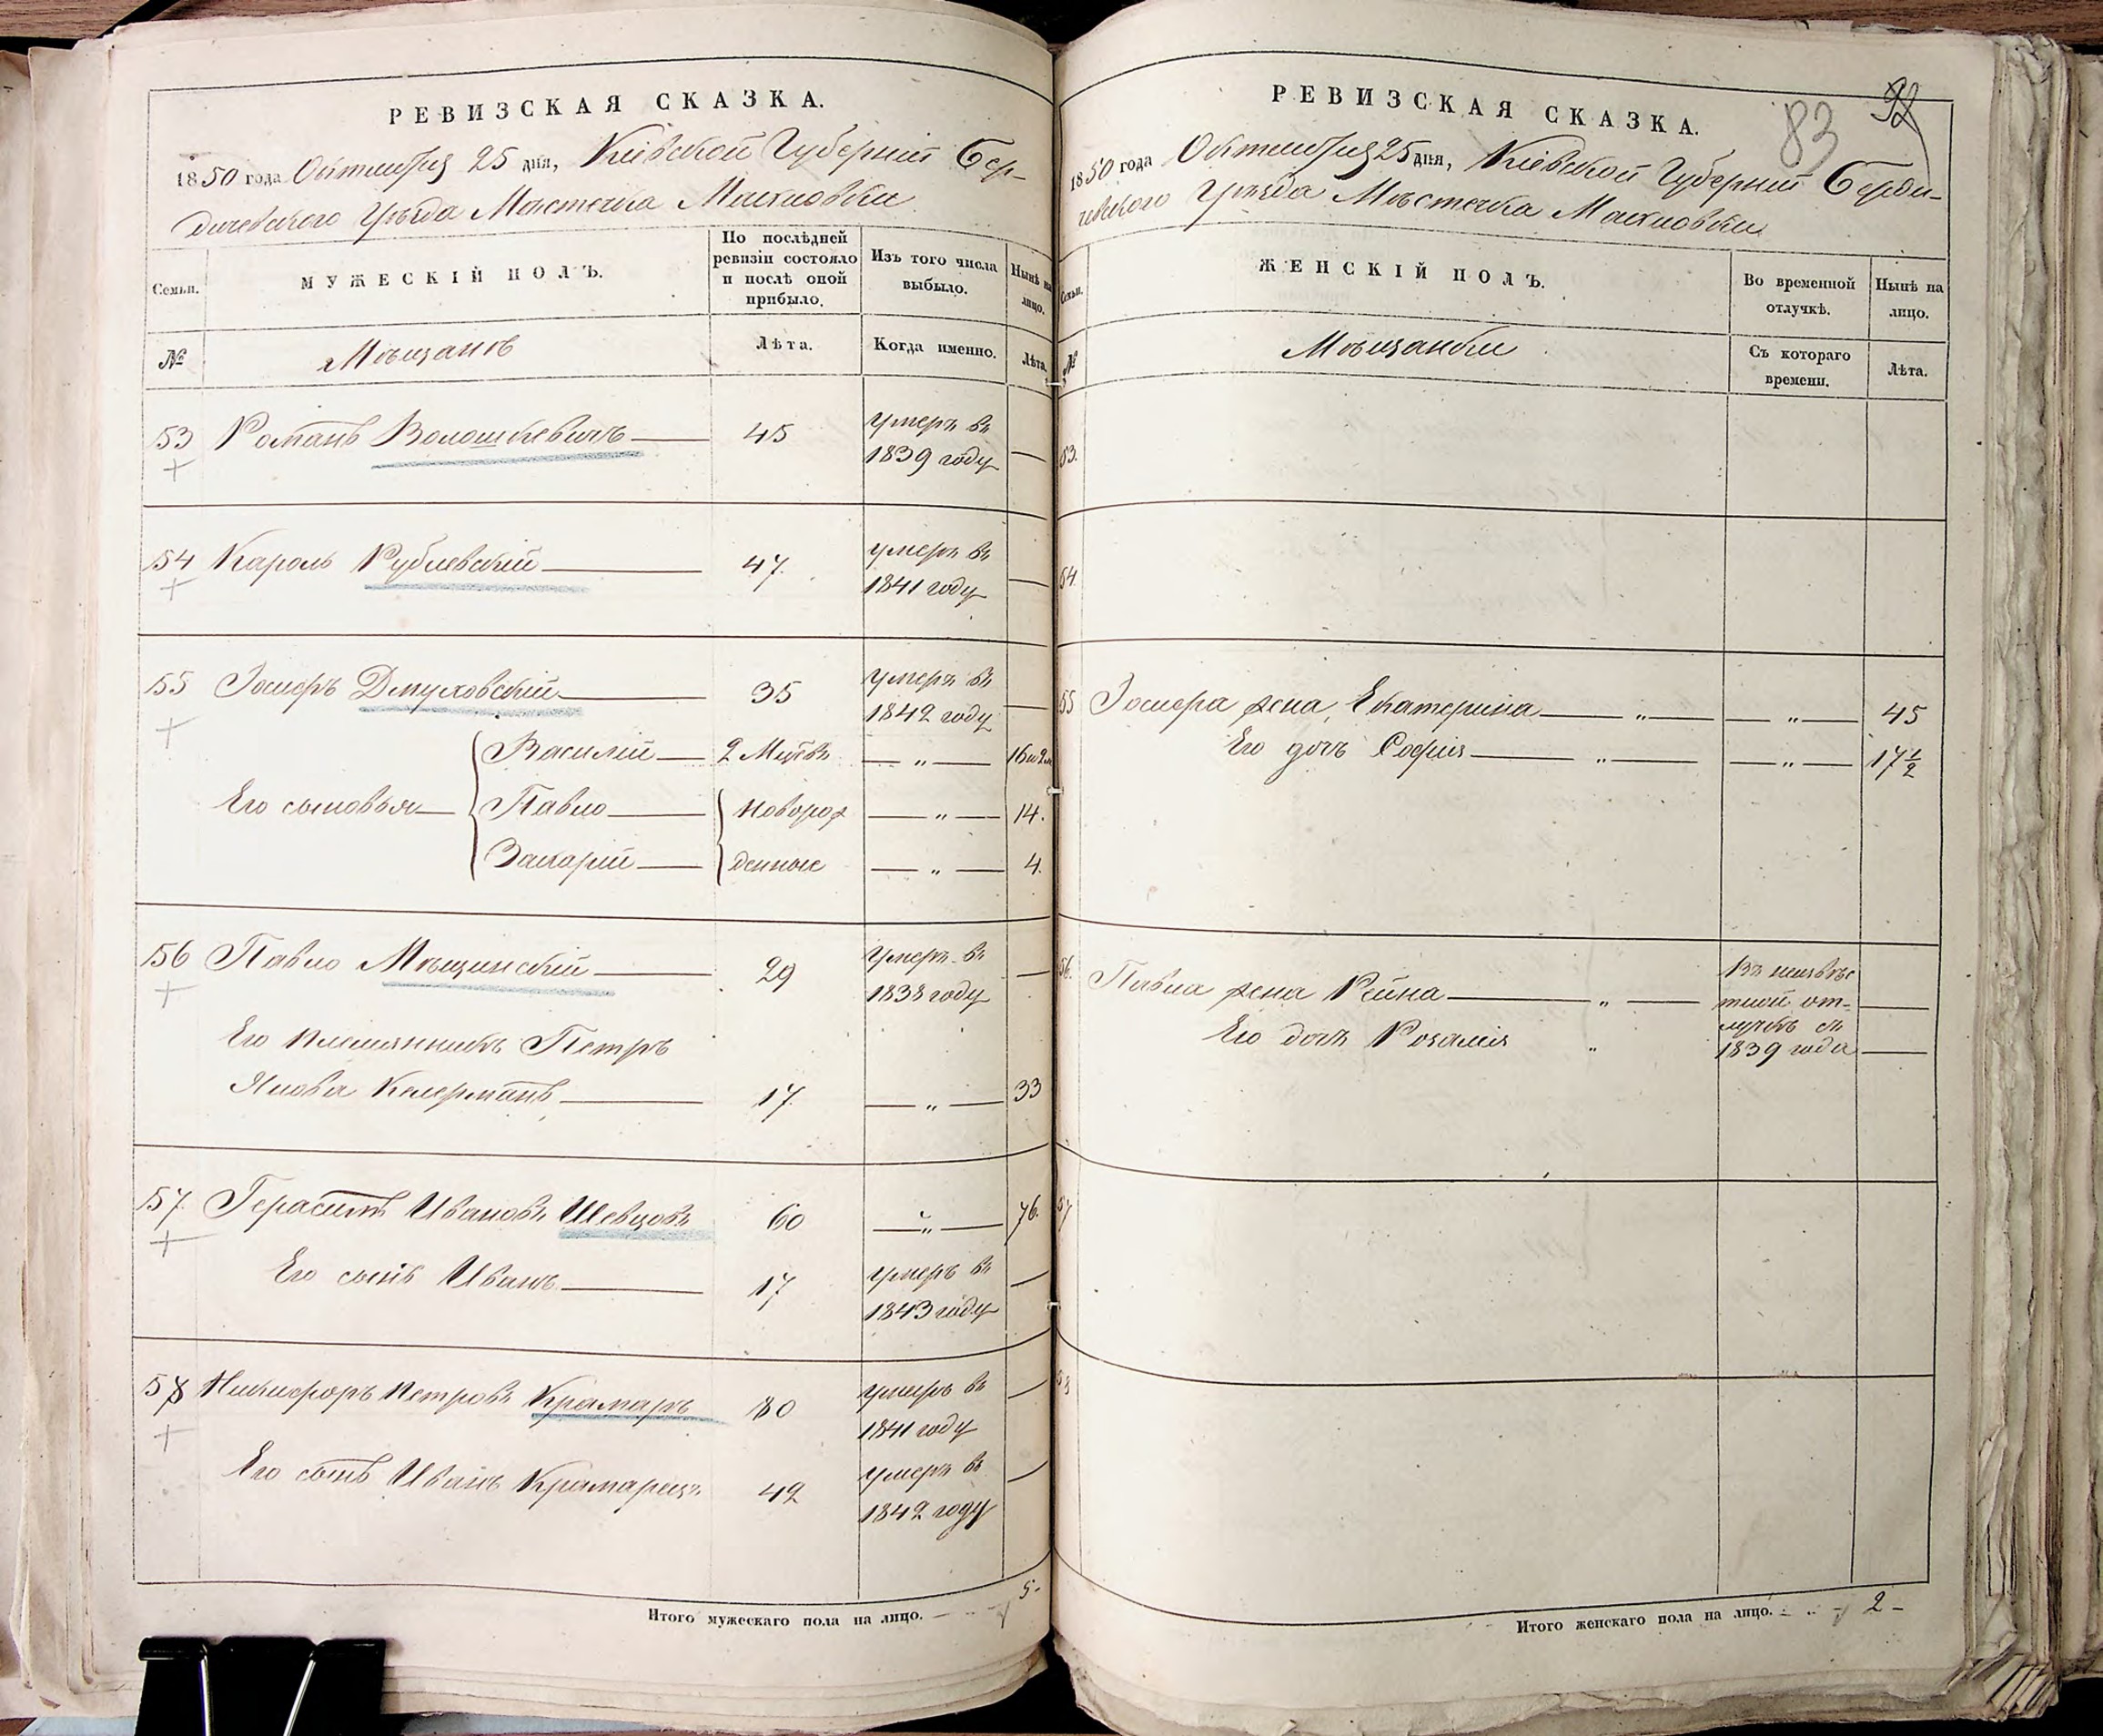 РЕВИЗСКАЯ СКАЗКА.
1850 года Октября 25 дня, Кіевской Губерніи Бер-
дичевского Уѣзда Мѣстечка Махновки
Семьи.
МУЖЕСКІЙ ПОЛЪ.
По послѣдней ревизіи состояло и послѣ оной прибыло.
Изъ того числа выбыло.
Нынѣ на лицо.
№
Мѣщанъ
Лѣта.
Когда именно.
Лѣта.
53 Романъ Волошкевичъ 45 умеръ въ
1839 году
54 Кароль Рублевскій 47. умеръ въ
1841 году
55 Іосифъ Дмуховскій 35 умеръ въ
1842 году
Василій 2 Мцѣвъ „ 16 и 2 м
Его сыновья Павло новорож „ 14.
Захарій денные „ 4.
56 Павло Мѣщинскій 29 умеръ въ
1838 году
Его племянникъ Петръ
Якова Келерманъ 17. „ 33
57. Герасимъ Ивановъ Шевцовъ 60 „ 76.
Его сынъ Иванъ 17 умеръ въ
1843 году
58 Никифоръ Петровъ Крамаръ 80 умеръ въ
1841 году
Его сынъ Иванъ Крамарецъ 42 умеръ въ
1842 году
Итого мужескаго пола на лицо. 5-
83
92
РЕВИЗСКАЯ СКАЗКА.
1850 года Октября 25 дня, Кіевской Губерніи Берди-
чевского Уѣзда Мѣстечка Махновки
Семьи.
ЖЕНСКІЙ ПОЛЪ.
Во временной отлучкѣ.
Нынѣ на лицо.
№
Мѣщанки
Съ котораго времени.
Лѣта.
53.
54.
55 Іосифа жена Екатерина „ „ 45
Его дочь Софія „ „ 17 1/2
56. Павла жена Рейна „ въ неизвѣс
тной от-
Его дочь Розалія „ лучкѣ съ
1839 года
57
58
Итого женскаго пола на лицо. 2-